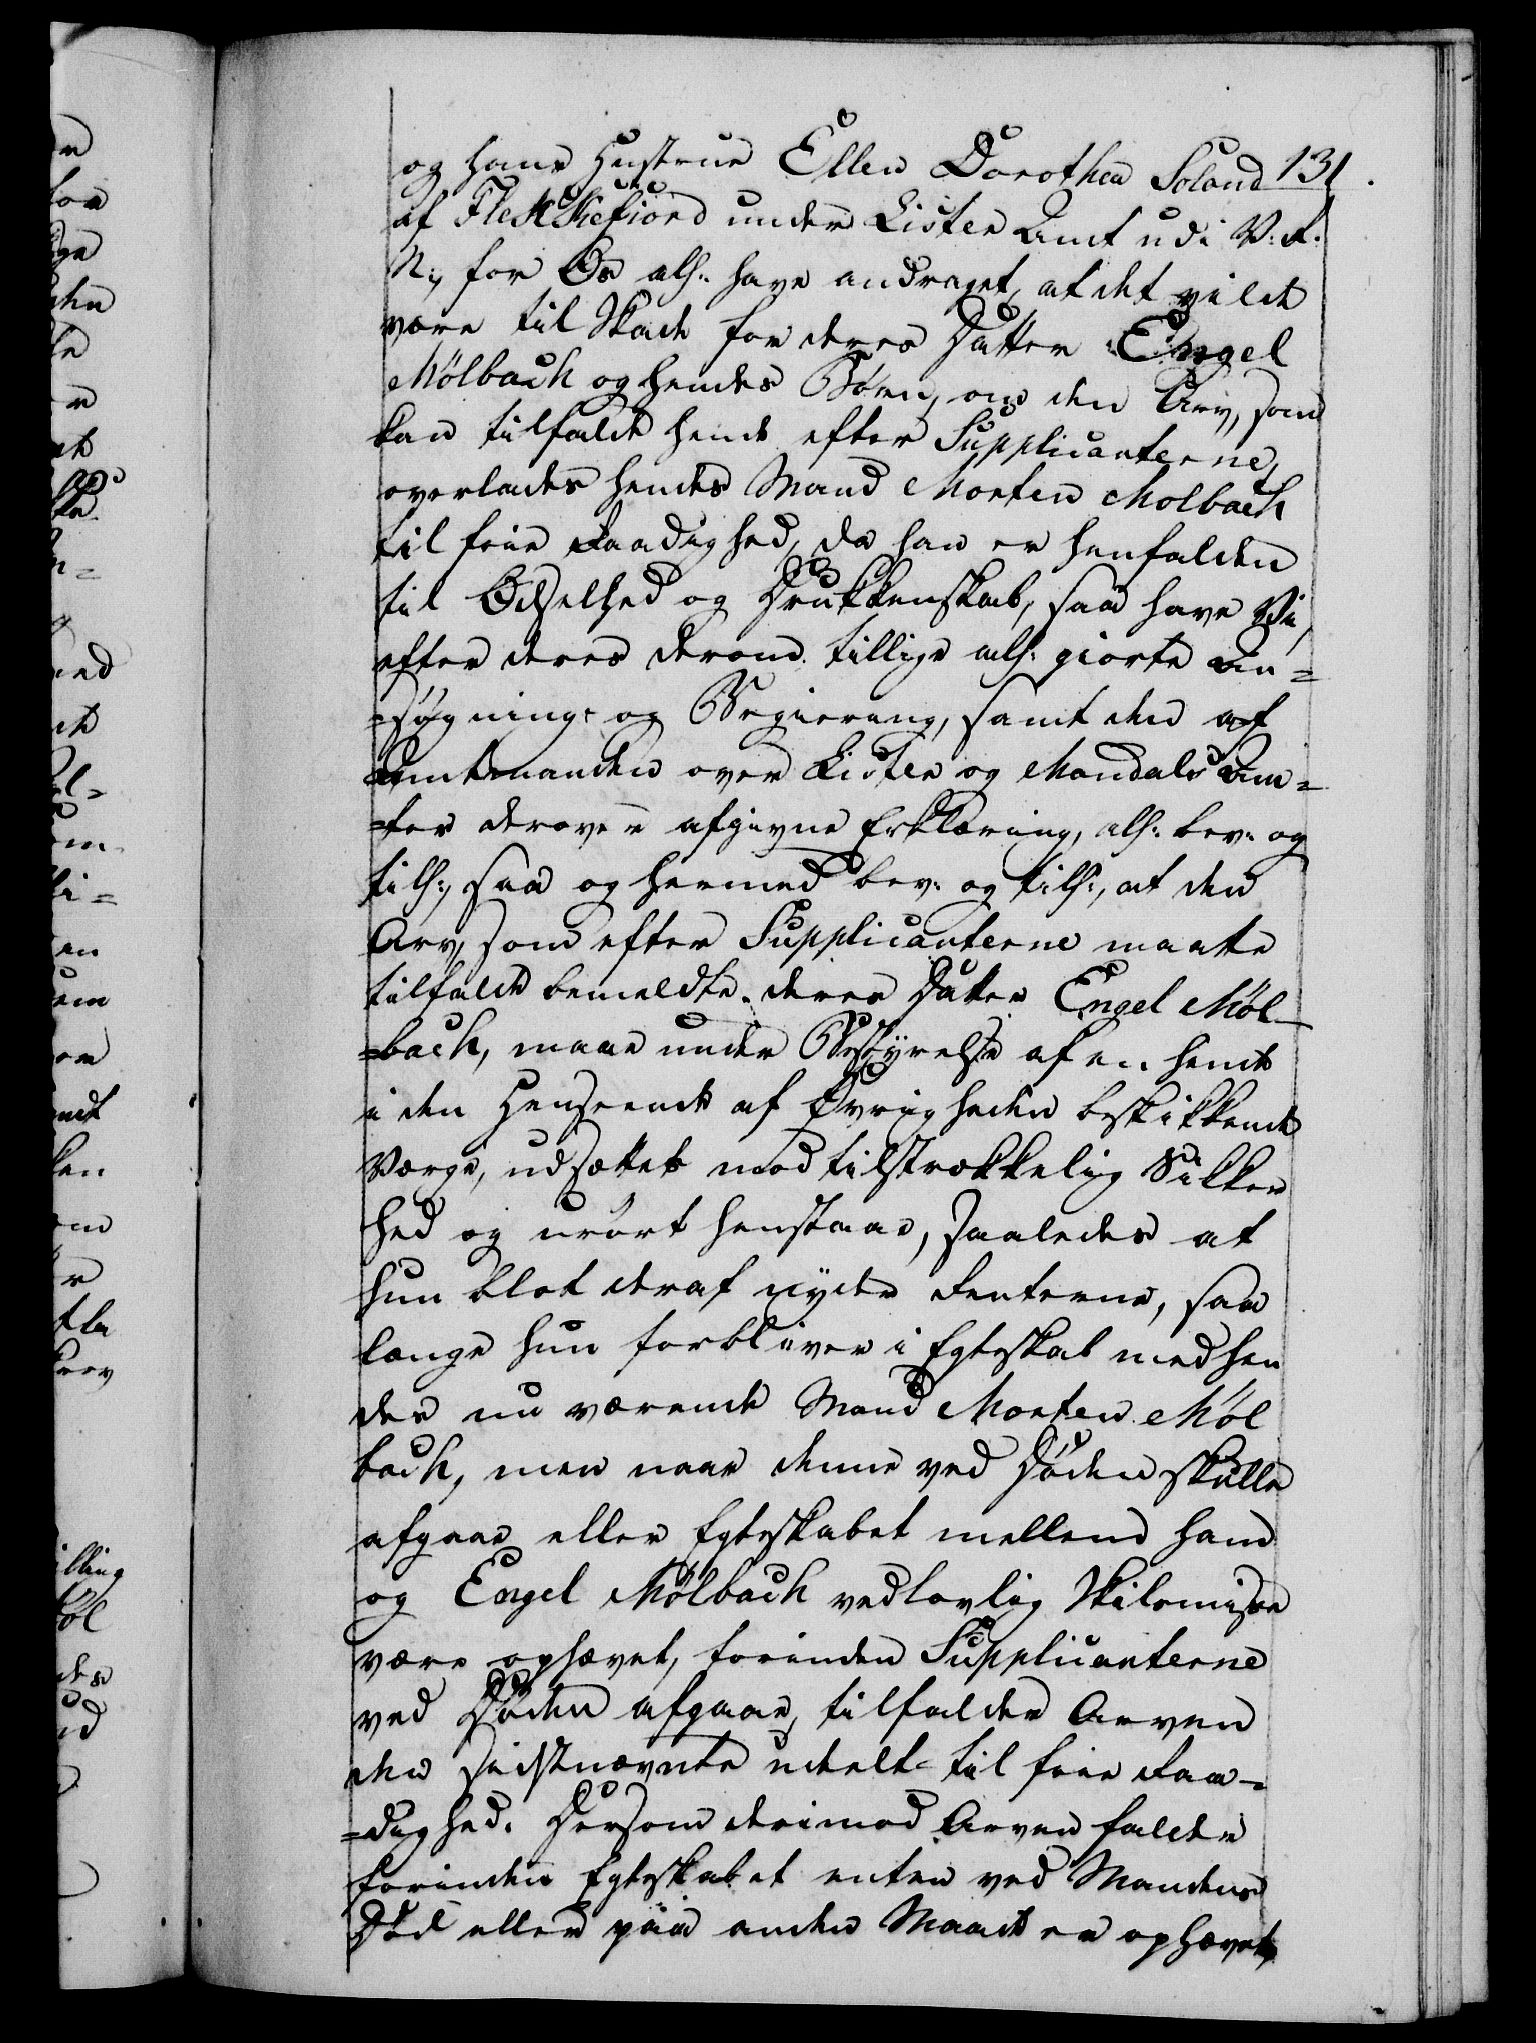 og hans Hustrue Ellen Dorothea Soland 131.
af Flekkefiord under Lister Amt udi V: R:
N:, for Os als: have andraget, at det vilde
være til Skade for deres Datter Engel
Mölbach og hendes Børn, om den Arv, som
kan tilfalde hende efter Supplicanterne,
overlades hendes Mand Morten Mølbach
til frie Raadighed, da han er henfalden
til Ødselhed og Drukkenskab, saa have Vi,
efter deres derom tillige als: giorte An=
=søgning og Begiering, samt den af
Amtmanden over Lister og Mandals Am=
=ter derover afgivne Erklæring, als: bev: og
tils:, saa og hermed bev: og tils:, at den
Arv, som efter Supplicanterne maatte
tilfalde bemeldte deres Datter Engel Möl-
=bach, maae under Bestyrelse af en hende
i den Henseende af Øvrigheden beskikkende
Værge, udsættes mod tilstrækkelig Sikker
hed og urørt henstaae, saaledes at
hun blot deraf nyder Renterne, saa
længe hun forbliver i Egteskab med hen
des nu værende Mand Morten Möl
bach, men naar denne ved Døden skulle
afgaae eller Egteskabet mellem ham
og Engel Mölbach ved lovlig Skilsmisse
være ophævet, forinden Supplicanterne
ved Døden afgaae, tilfalder Arven
den sidstnævnte udelt til frie Raa-
=dighed. Dersom derimod Arven falder
forinden Egteskabet enten ved Mandens
Død eller paa anden Maade er ophævet,